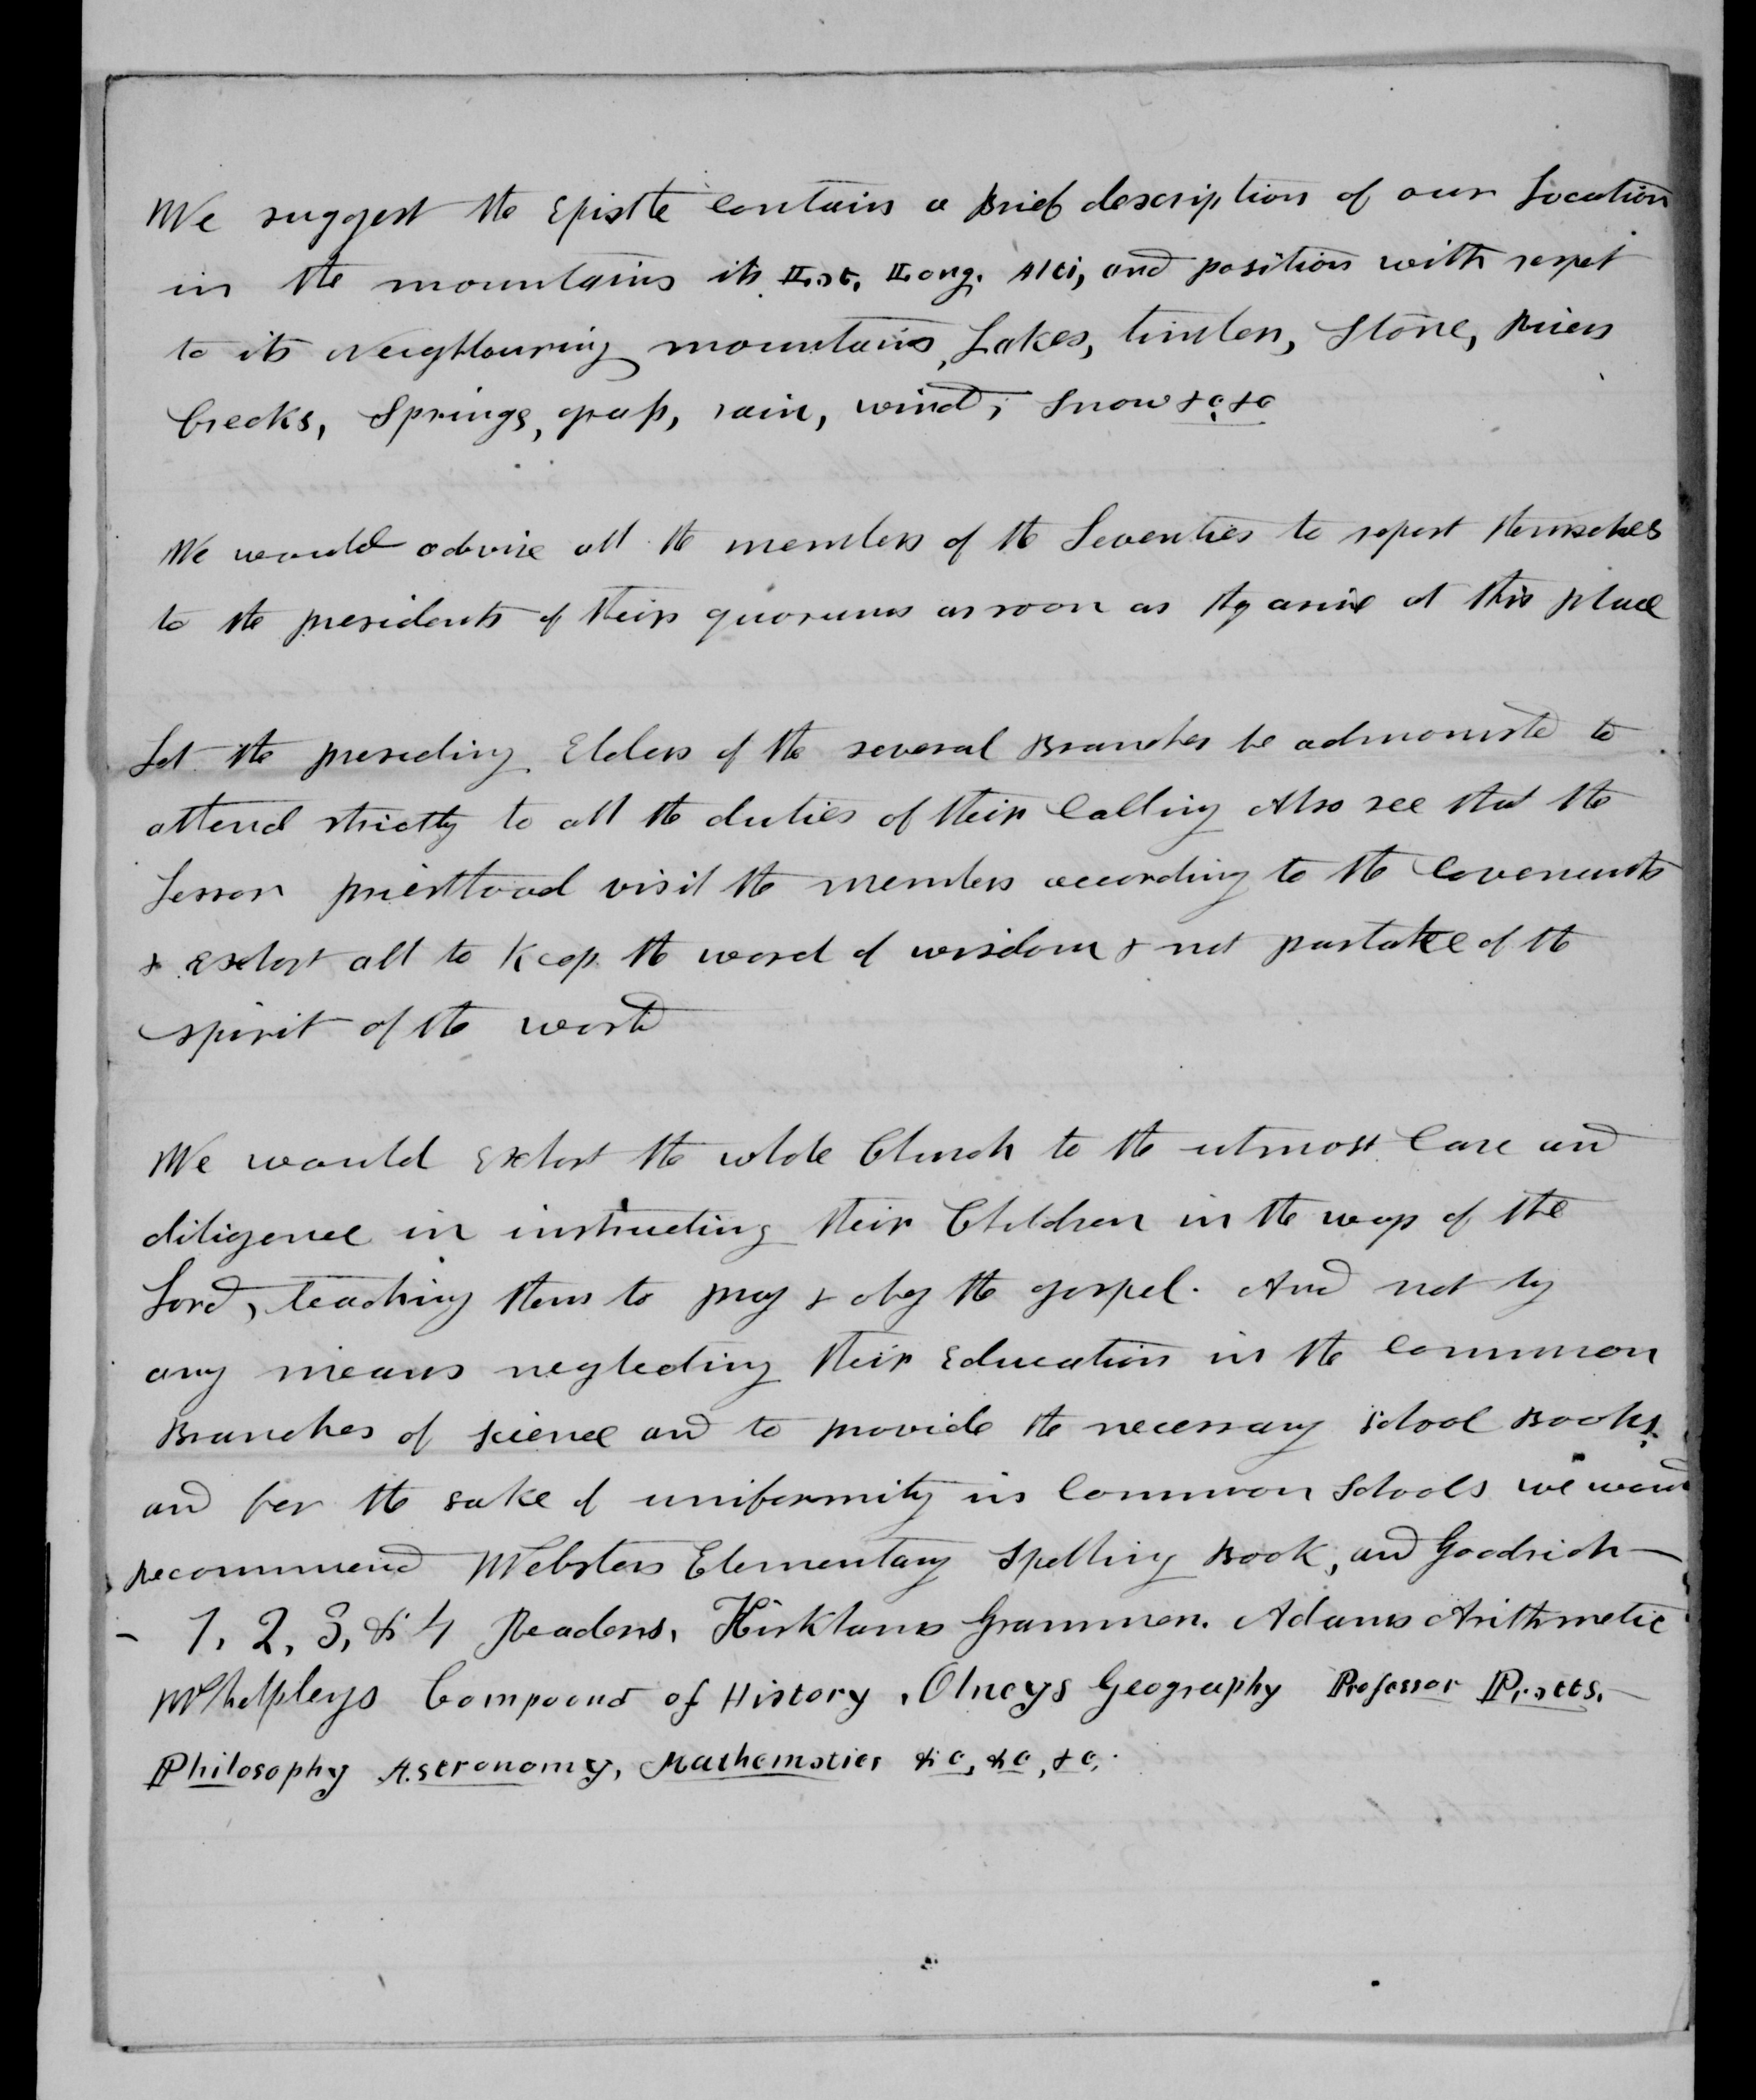 We suggest the Epistle contain a Brief description of our Location
in the mountains its Lat, Long. Alti, and position with respet
to its Neighbouring mountains, Lakes, timber, Stone, Rivers
Creeks, Springs, grass, rain, wind, Snow &c &c
We would advise all the members of the Seventies to report themselves
to the presidents of their quorums as soon as they arive at this place
Let the presiding Elders of the several Branches be admonishd to
attend strictly to all the duties of their Calling Also see that the
Lesser priesthood visit the members according to the Covenants
& exhort all to Keep the word of wisdom & not partake of the
spirit of the world
We would Exhort the whole Church to the utmost Care and
diligence in instructing their Children in the ways of the
Lord, teaching them to pray & obey the gospel. And not by
any means neglecting their Education in the Common
Branches of science and to provide the necessary School Books.
and for the sake of uniformity in Common Schools we would
Recommend Websters Elementary Spelling Book, and Goodrich —
- 1, 2, 3, & 4 Readers, Kirkhams Grammer. Adams Arithmetic
Whelpleys Compound of History, Olneys Geography Professor Pratts.
Philosophy Astronomy, Mathematics &c, &c, &c.